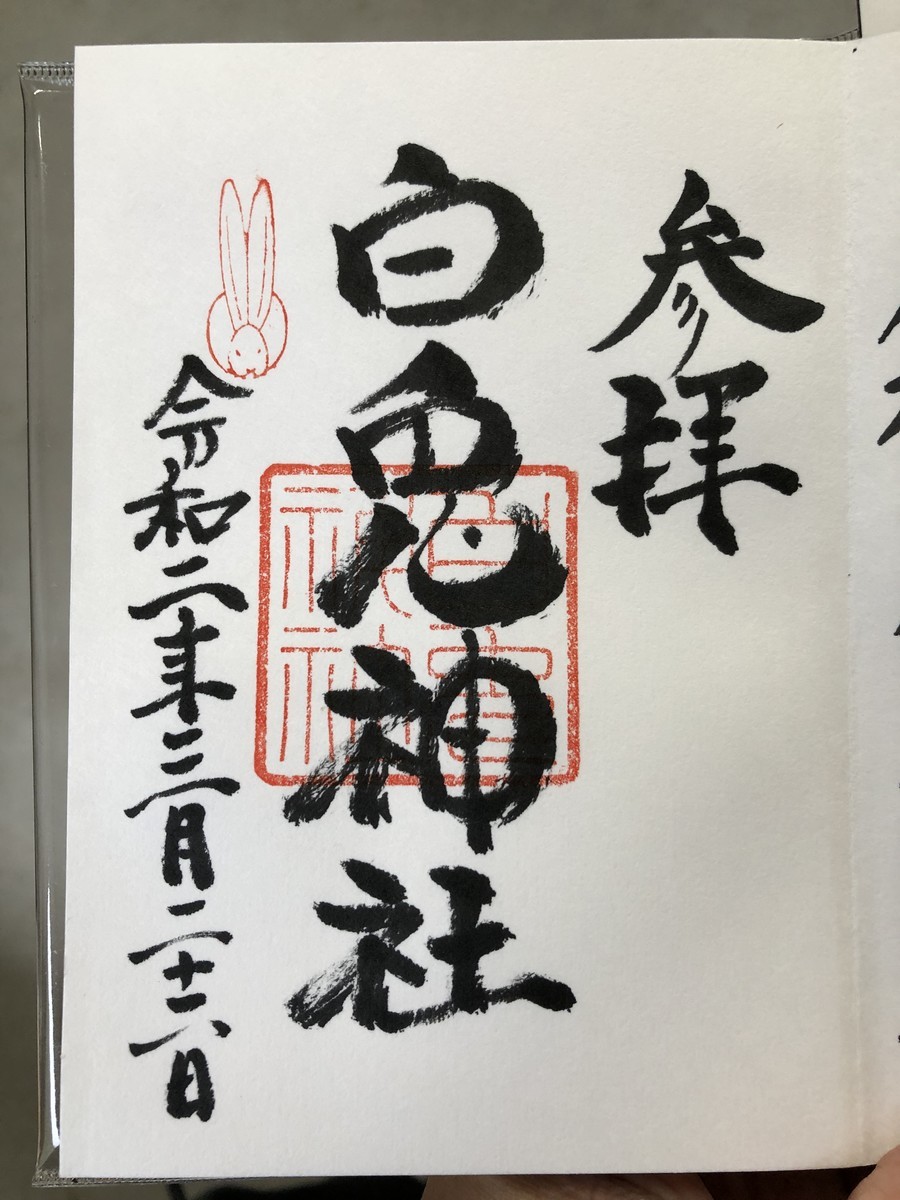 参拝
白兎神社
令和二年三月二十六日